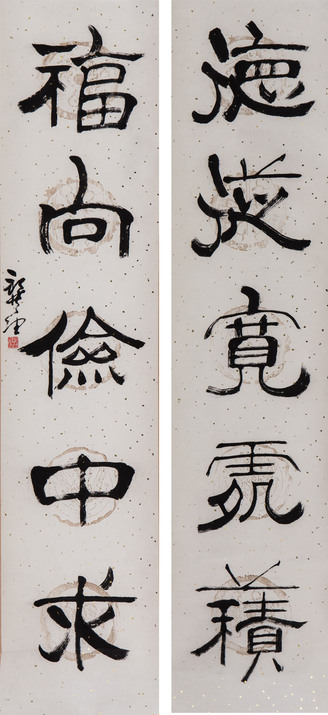 德從寬處積
福向儉中求
龔望